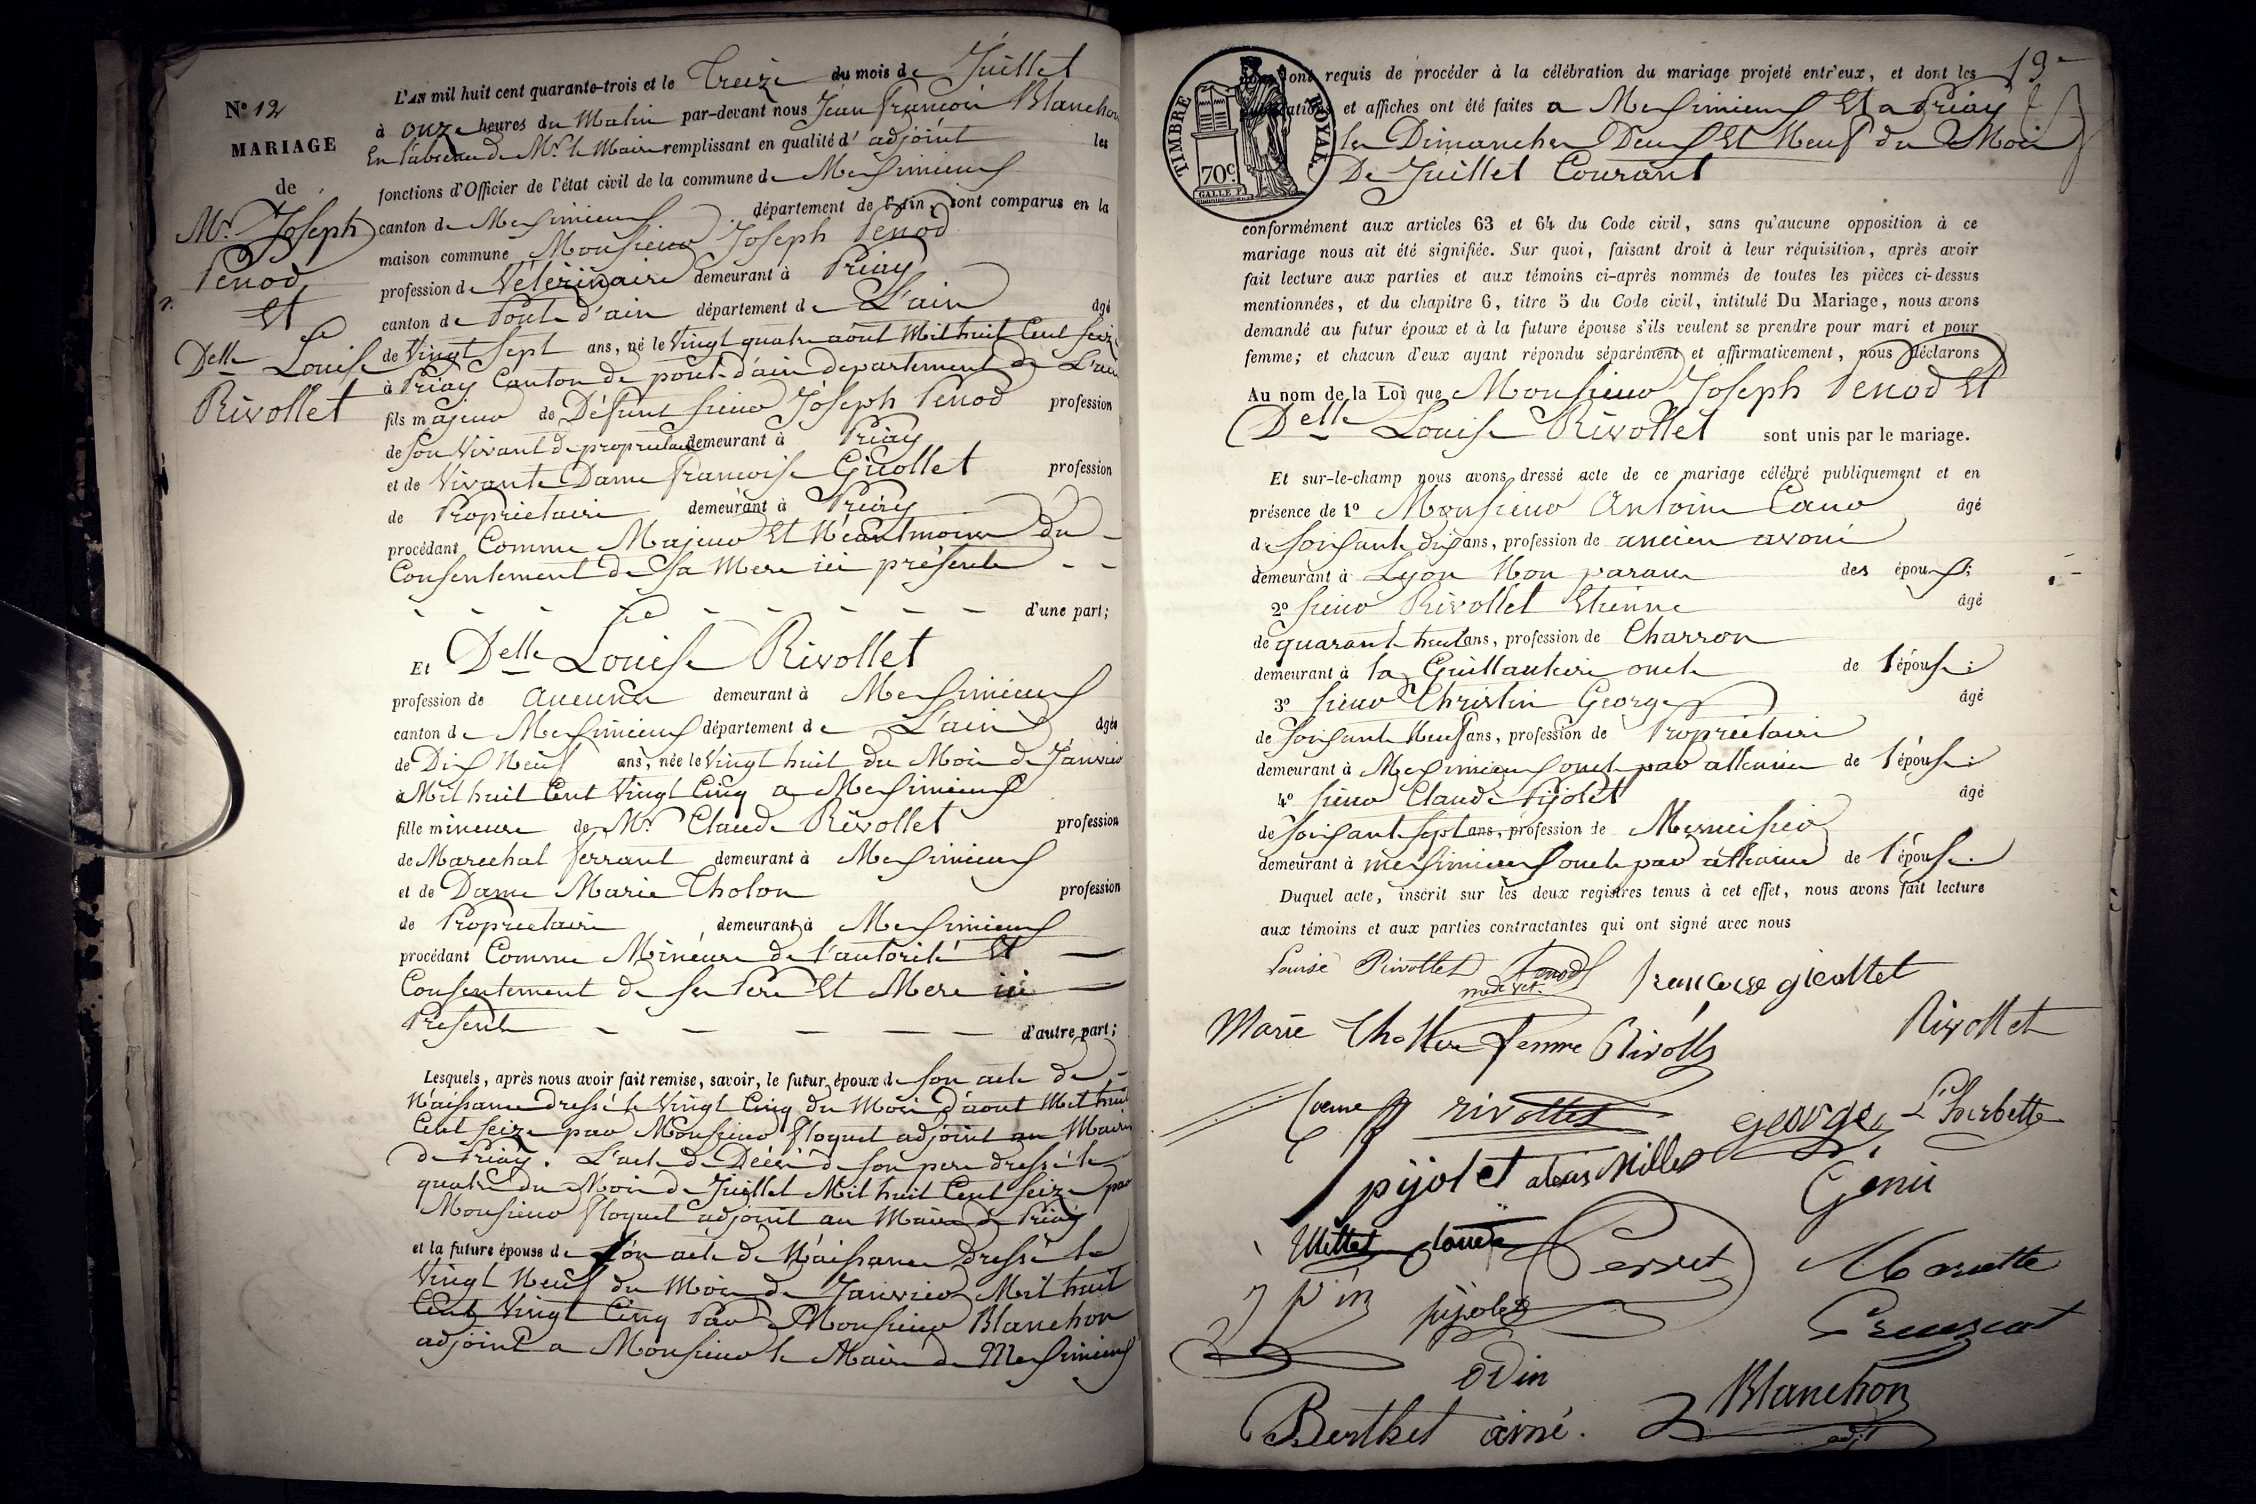 N° 12
MARIAGE
de
Mr. Joseph
Penod
Et
Delle Louise
Rivollet
L'AN mil huit cent quarante-trois et le Treize du mois de Juillet
à onze heures du Matin par-devant nous Jean françois Blanchon
En l'absence de Mr. le Maire remplissant en qualité d'adjoint les
fonctions d'Officier de l'état civil de la commune de Meximieux
canton de Meximieux département de l'Ain, sont comparus en la
maison commune Monsieur Joseph Penod
profession de Vétérinaire demeurant à Priay
canton de Pont d'ain département de L'ain âgé
de Vingt Sept ans, né le Vingt quatre aout Mil huit Cent Seize
à Priay Canton de pont-d'ain departement de L'ain
fils majeur de Défunt sieur Joseph Penod profession
de Son Vivant de proprietaire demeurant à Priay
et de Vivante Dame francoise Gicollet profession
de Proprietaire demeurant à Priay
procédant Comme Majeur Et Néantmoins du
Consentement de Sa Mere ici présente
d'une part;
Et Delle Louise Rivollet
profession de aucune demeurant à Meximieux
canton de Meximieux département de L'ain âgée
de Dix Neuf ans, née le Vingt huit du Mois de Janvier
Mil huit Cent Vingt Cinq a Meximieux
fille mineure de Mr. Claude Rivollet profession
de Marechal ferrant demeurant à Meximieux
et de Dame Marie Tholon profession
de Proprietaire demeurant à Meximieux
procédant Comme Mineure de l'autorité Et
Consentement de Ses Pere Et Mere ici
Present
d'autre part;
Lesquels, après nous avoir fait remise, savoir, le futur époux de Son acte de
Naissance dressé le Vingt Cinq du Mois d'aout Mil huit
Cent Seize par Monsieur floquet adjoint au Maire
de Priay. L'acte de Décès de Son pere dressé le
quatre du Mois de Juillet Mil huit Cent Seize par
Monsieur floquet adjoint au Maire de Priay
et la future épouse de Son acte de Naissance dressé le
Vingt Neuf du Mois de Janvier Mil huit
Cent Vingt Cinq Par Monsieur Blanchon
adjoint a Monsieur le Maire de Meximieux
19
TIMBRE ROYAL
70c.
GALLE F.
ont requis de procéder à la célébration du mariage projeté entr'eux, et dont les
et affiches ont été faites a Meximieux Et a Priay
les Dimanches Deux Et Neuf du Mois
De Juillet Courant
conformément aux articles 63 et 64 du Code civil, sans qu'aucune opposition à ce
mariage nous ait été signifiée. Sur quoi, faisant droit à leur réquisition, après avoir
fait lecture aux parties et aux témoins ci-après nommés de toutes les pièces ci-dessus
mentionnées, et du chapitre 6, titre 5 du Code civil, intitulé Du Mariage, nous avons
demandé au futur époux et à la future épouse s'ils veulent se prendre pour mari et pour
femme; et chacun d'eux ayant répondu séparément et affirmativement, nous déclarons
Au nom de la Loi que Monsieur Joseph Penod Et
Delle Louise Rivollet sont unis par le mariage.
Et sur-le-champ nous avons dressé acte de ce mariage célébré publiquement et en
présence de 1° Monsieur Antoine âgé
de Soixante dix ans, profession de ancien avoué
demeurant à Lyon Non parant des époux;
2° sieur Rivollet Etienne âgé
de quarante huit ans, profession de Charron
demeurant à la Guillautiere oncle de l'épouse;
3° sieur Christin George âgé
de Soixante Neuf ans, profession de Proprietaire
demeurant à Meximieux oncle par alliance de l'épouse;
4° sieur Claude Pijolet âgé
de Soixante Sept ans, profession de Menuisier
demeurant à meximieux oncle par alliance de l'épouse.
Duquel acte, inscrit sur les deux registres tenus à cet effet, nous avons fait lecture
aux témoins et aux parties contractantes qui ont signé avec nous
Louise Rivollet Penod francoise gicollet
med. vet.
Marie femme Rivollet
rivollet george L'herbette
pijolet alexis Millet Genin
Millet claude Perret Mariette
pijolet Creuzcat
odin
Berthet ainé. Blanchon
adjt